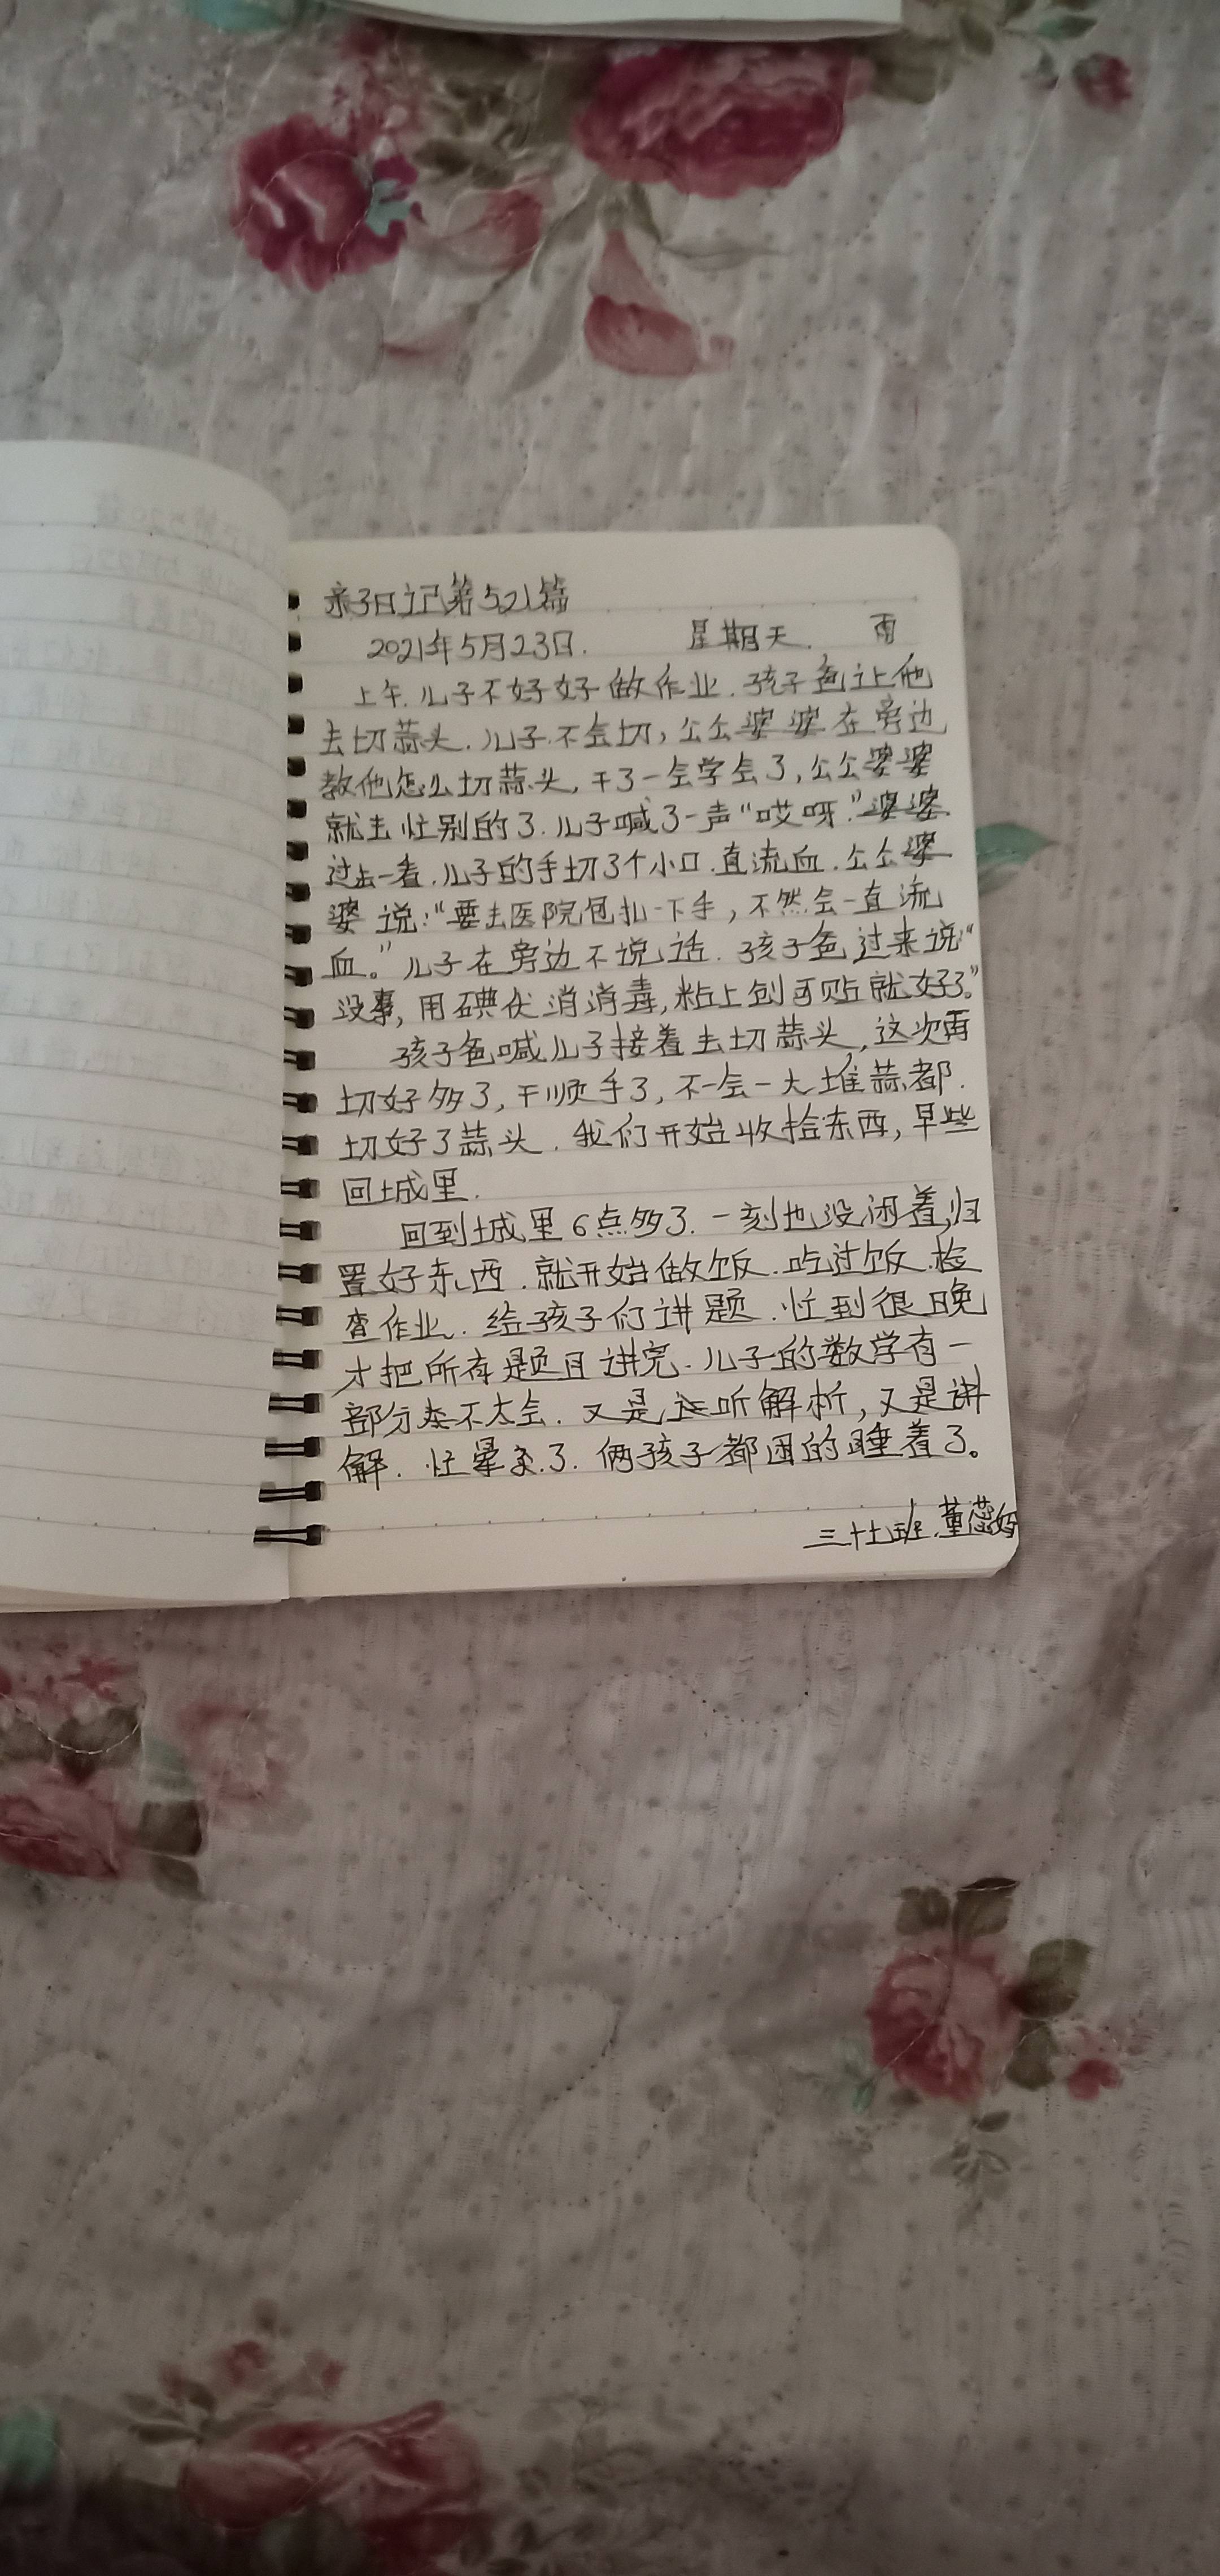 亲子日记第521篇
2021年5月23日. 星期天. 雨
上午.儿子不好好做作业.孩子爸让他
去切蒜头.儿子不会切,公公婆婆在旁边
教他怎么切蒜头,干了一会学会了,公公婆婆
就去忙别的了.儿子喊了一声“哎呀.”婆婆
过去一看.儿子的手切了个小口.直流血.公公婆
婆说:“要去医院包扎一下手,不然会一直流
血。”儿子在旁边不说话.孩子爸过来说“
没事,用碘伏消消毒,粘上创可贴就好了。”
孩子爸喊儿子接着去切蒜头,这次再
切好多了,干顺手了,不一会一大堆蒜都.
切好了蒜头.我们开始收捡东西,早些
回城里.
回到城里6点多了.一刻也没闲着,归
置好东西.就开始做饭.吃过饭.检
查作业.给孩子们讲题.忙到很晚
才把所有题目讲完.儿子的数学有一
部分类不太会.又是 听解析,又是讲
解.忙晕 了.俩孩子都困的睡着了。
三十七班.董蕊